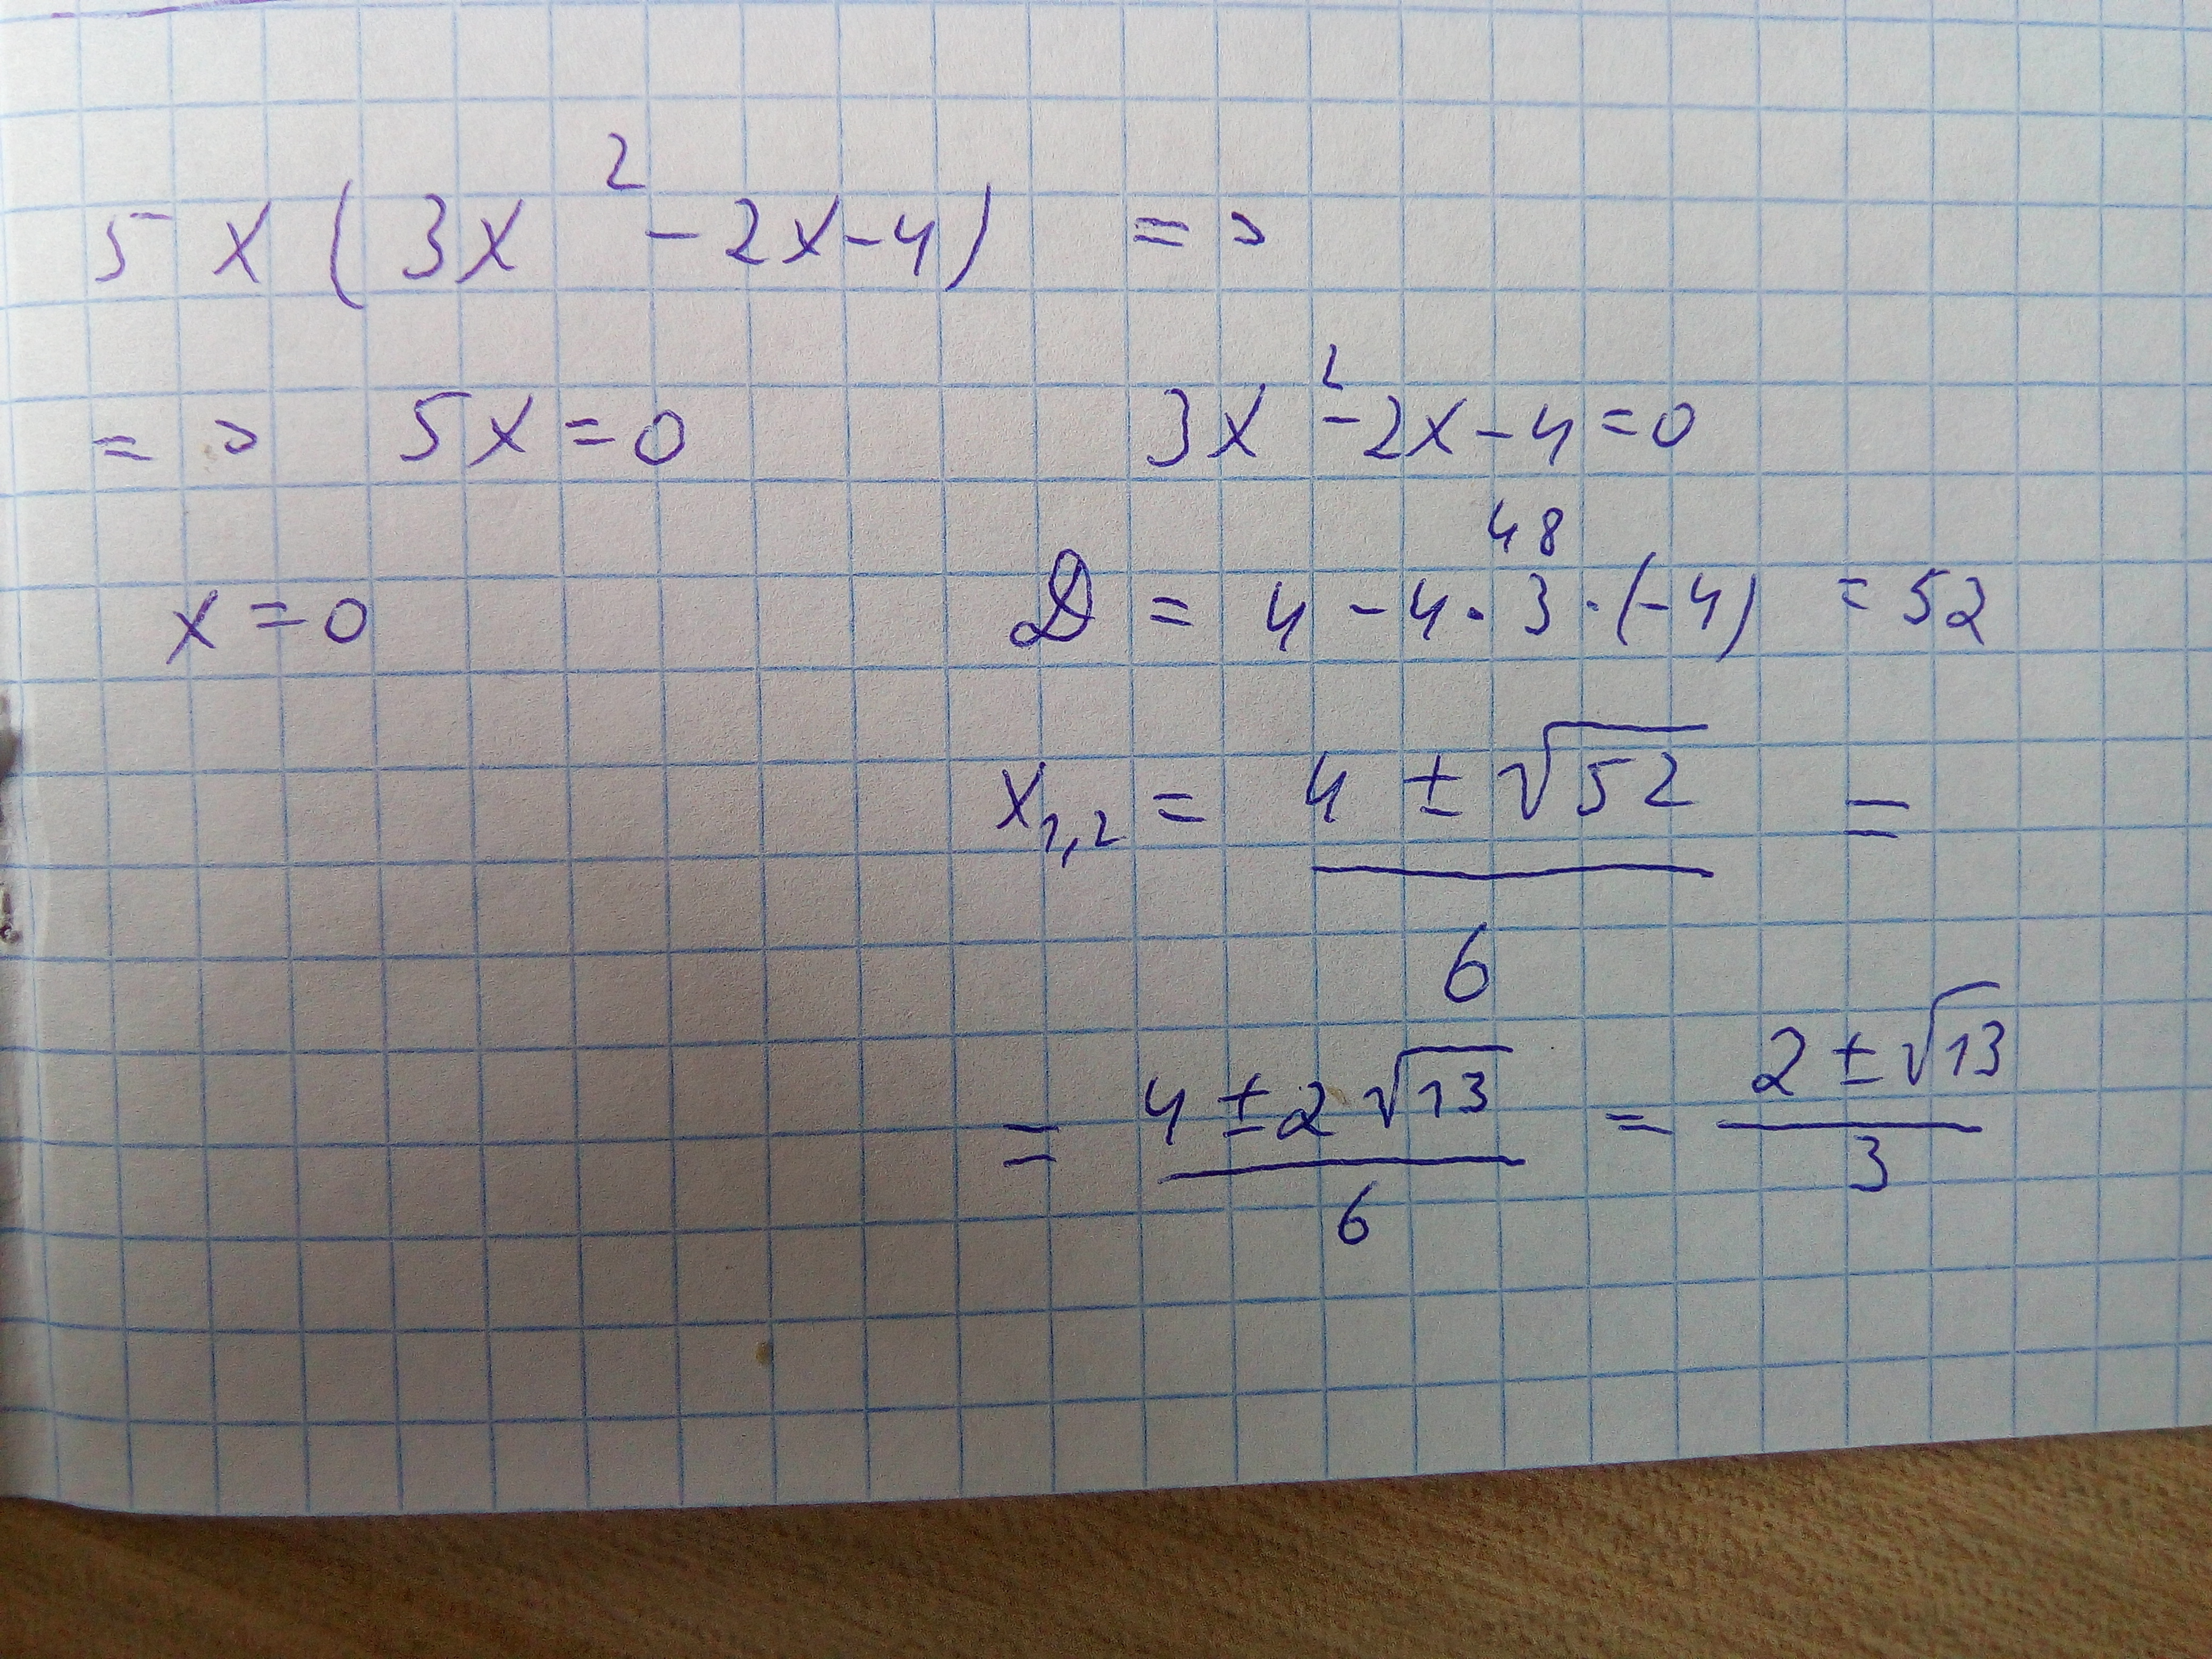 5x(3x² - 2x - 4) =>
=> 5x = 0    3x² - 2x - 4 = 0
48
x = 0    D = 4 - 4 · 3 · (-4) = 52
x₁,₂ = (4 ± √52) / 6 =
= (4 ± 2√13) / 6 = (2 ± √13) / 3